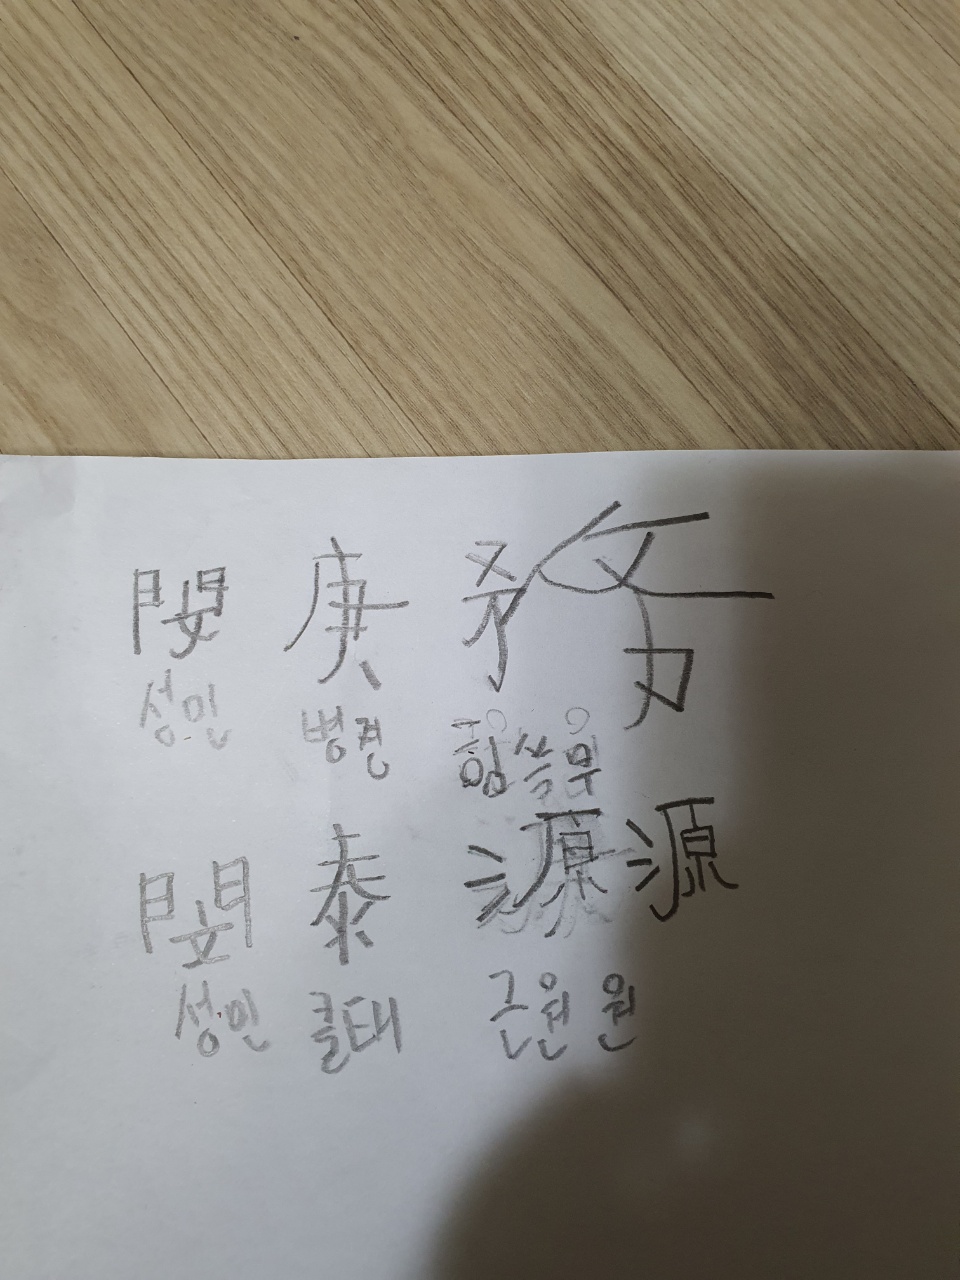 閔 庚 務
성민 병경 힘쓸무
閔 泰 源 源
성민 클태 근원 원